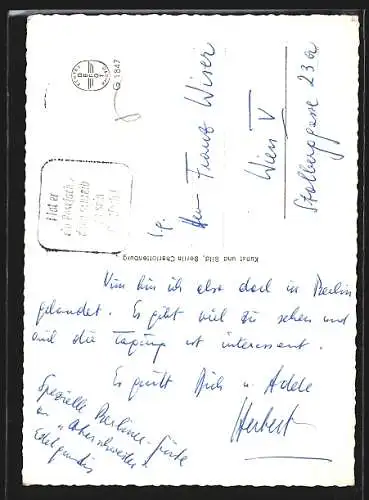 G 1847
Hier
Hp.
Herrn Franz Wiser
Wien V
Stolberggasse 23a
Kunst und Bild, Berlin Charlottenburg
Nun bin ich also doch in Berlin
gelandet. Es gibt viel zu sehen und
auch die Tagung ist interessant.
Es grüßt Dich u. Adele
Herbert
Spezielle Berliner-Grüße
an